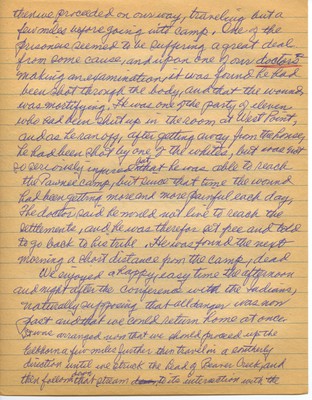 then we proceeded on our way, traveling but a
few miles before going into camp. One of the
prisoners seemed to be suffering a great deal
from some cause, and upon one of our doctors
making an examination, it was found he had
been shot through the body, and that the wound
was mortifying. He was one of the party of eleven
who had been shut up in the room at West Point,
and as he ran away, after getting away from the house,
he had been shot by one of the whites, but was not
so seriously injured but that he was able to reach
the Pawnee camp, but since that time the wound
had been getting more and more painful each day.
The doctor said he would not live to reach the
settlements, and he was therefor set free and told
to go back to his tribe. He was found the next
morning a short distance from the camp, dead
We enjoyed a happy, easy time the afternoon
and night after the conference with the Indians,
naturally supposing that all danger was now
past and that we could return home at once.
arranged now that we should proceed up the
Elkhorn a few miles further then travel in a
direction until we struck the head of Beaver Creek, and
then follow that stream down to its intersection with the